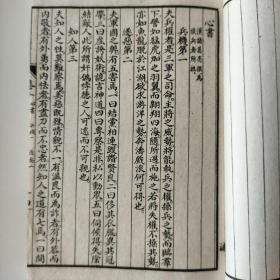 心書
兵機第一
夫兵權者是三軍之司命主將之威勢將能執兵之權操兵之勢而臨羣
下譬如猛虎加之羽翼而翱翔四海隨所遇而施之若將失權不操其勢
亦如魚龍脫於江湖欲求游洋之勢奔濤戲浪何可得也
逐惡第二
夫軍國之弊有五害焉一曰結黨相連毀譖賢良二曰侈其衣服異其冠
帶三曰虛誇妖術詭言神道四曰專察是非私以動眾五曰伺候得失陰
結敵人此所謂奸偽悖德之人可遠而不可親也
知人第三
夫知人之性莫難察焉美惡既殊情貌不一有溫良而為詐者有外恭而
內欺者有外勇而內怯者有盡力而不忠者然知人之道有七焉一曰間